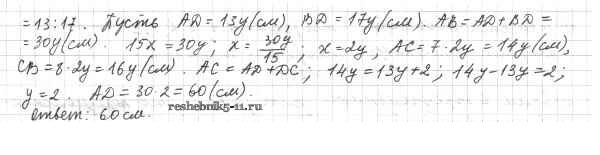 =13:17. Пусть AD=13y(см), BD=17y(см). AB=AD+BD=
=30y(см). 15x=30y; x=30y/15; x=2y, AC=7·2y=14y(см),
CB=8·2y=16y(см). AC=AD+DC; 14y=13y+2; 14y-13y=2;
y=2. AD=30·2=60(см).
Ответ: 60см.
reshebnik5-11.ru